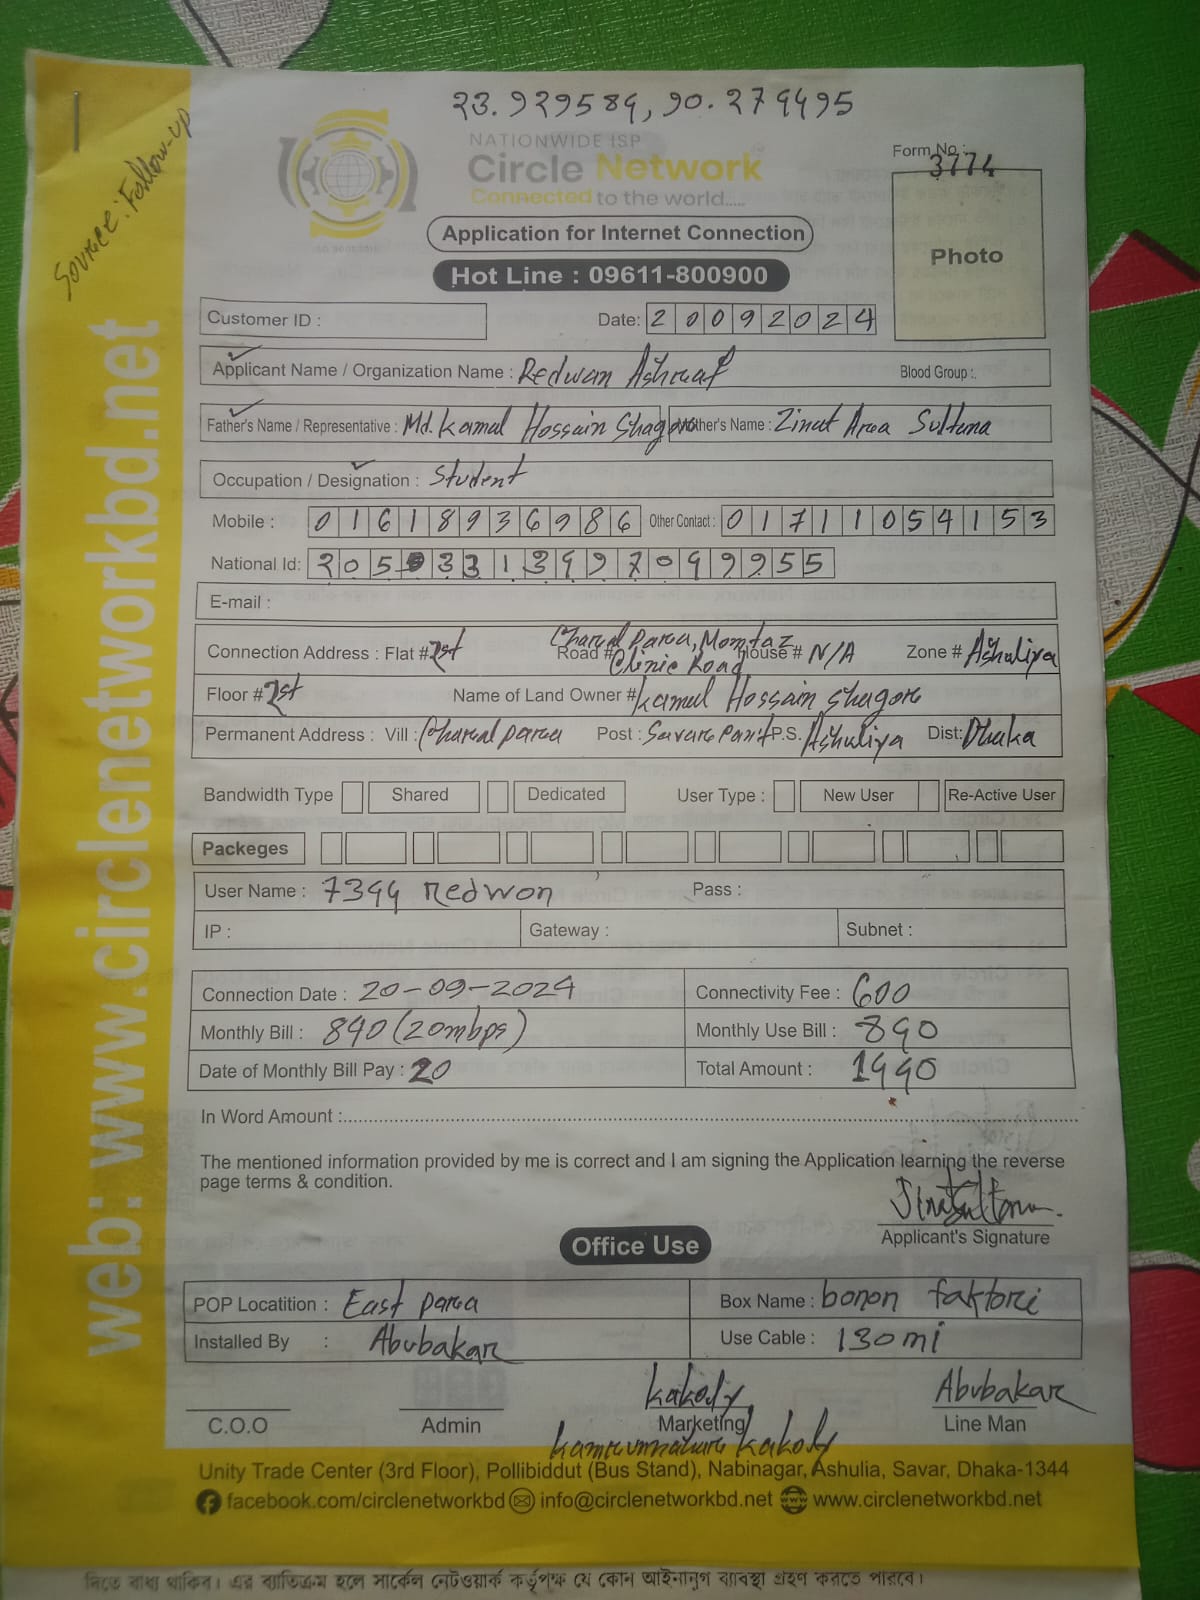 23.929589, 90.279495
Source: Follow-up
NATIONWIDE ISP
Circle Network
Connected to the world.....
Form No : 3774
Photo
Application for Internet Connection
Hot Line : 09611-800900
Customer ID :
Date: 20092024
Applicant Name / Organization Name : Redwan Ashraf
Blood Group :
Father's Name / Representative : Md. Kamal Hossain Shagor
Mother's Name : Zinat Ara Sultana
Occupation / Designation : Student
Mobile : 01618936986 Other Contact : 01711054153
National Id:
E-mail :
Connection Address : Flat # 1st Road # Charal Para, Momtaz Clinic Road House # N/A Zone # Ashuliya
Floor # 1st Name of Land Owner # Kamal Hossain Shagor
Permanent Address : Vill : Charal para Post : Savar P.S. Ashuliya Dist: Dhaka
Bandwidth Type Shared Dedicated User Type : New User Re-Active User
Packeges
User Name : 7344 Redwon Pass :
IP : Gateway : Subnet :
Connection Date : 20-09-2024 Connectivity Fee : 600
Monthly Bill : 840 (20mbps) Monthly Use Bill : 840
Date of Monthly Bill Pay : 20 Total Amount : 1440
In Word Amount :
The mentioned information provided by me is correct and I am signing the Application learning the reverse
page terms & condition.
Applicant's Signature
Office Use
POP Locatition : East para Box Name : bonon faktori
Installed By : Abubakar Use Cable : 130 mi
Kakoly Abubakar
C.O.O Admin Marketing Line Man
Kamrunnahar Kakoly
Unity Trade Center (3rd Floor), Pollibiddut (Bus Stand), Nabinagar, Ashulia, Savar, Dhaka-1344
facebook.com/circlenetworkbd info@circlenetworkbd.net www.circlenetworkbd.net
web: www.circlenetworkbd.net
দিতে বাধ্য থাকিব। এর ব্যাতিক্রম হলে সার্কেল নেটওয়ার্ক কর্তৃপক্ষ যে কোন আইনানুগ ব্যাবস্থা গ্রহণ করতে পারবে।